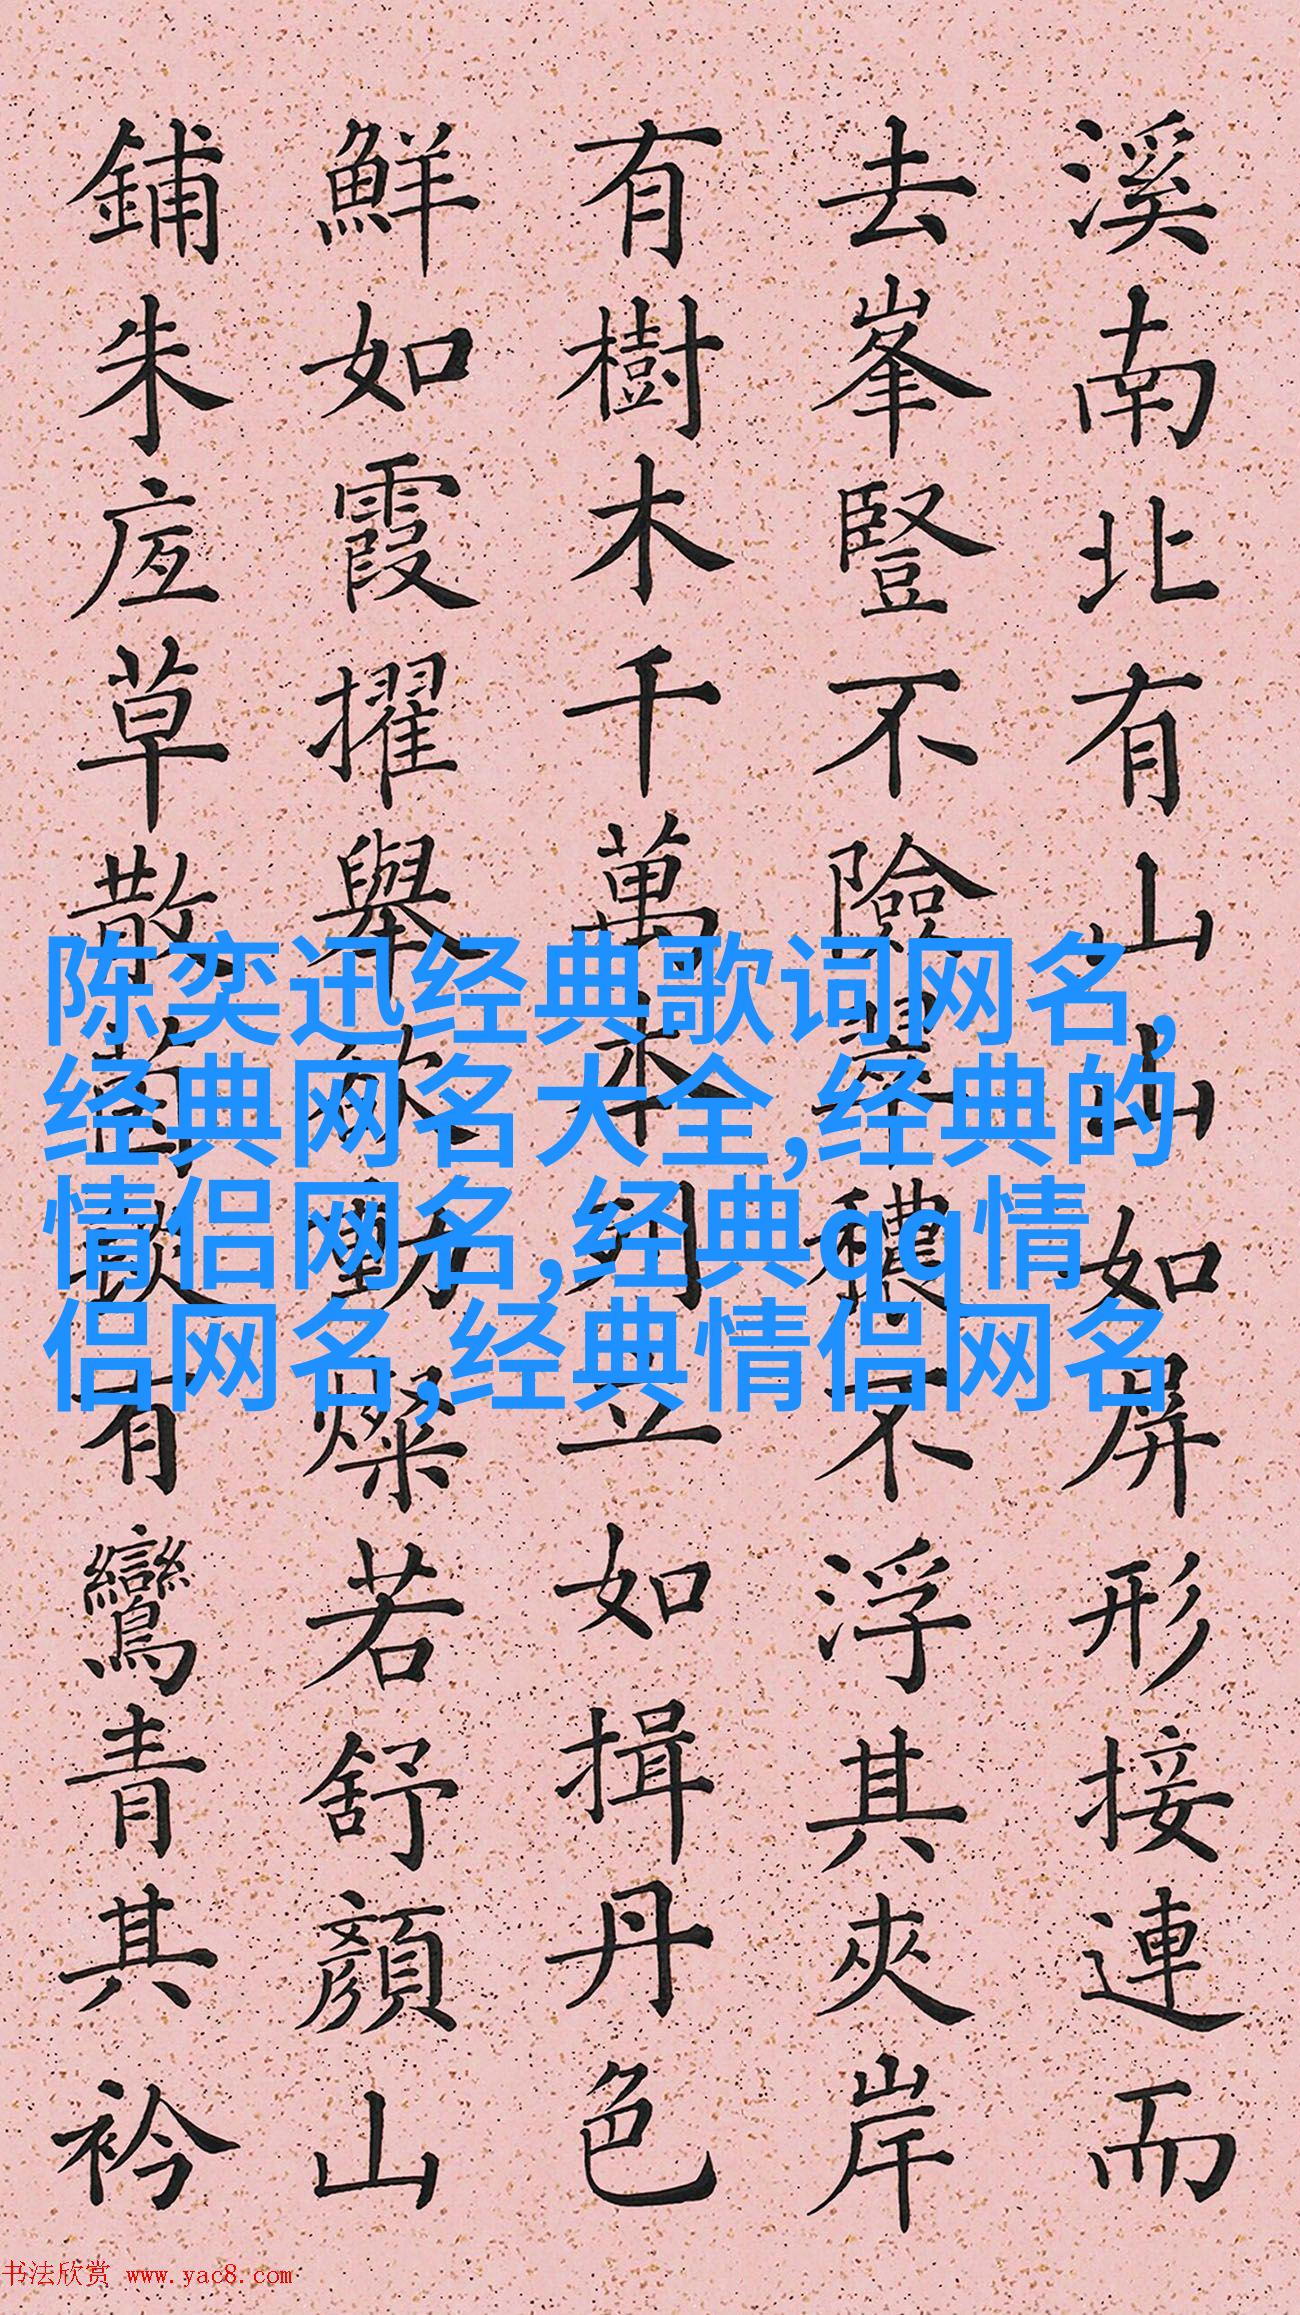 溪南北有山山如屏形接連而
去峯豎不險翠穠不浮其夾岸
有樹木千萬本列立如揖丹色
鮮如霞擢舉欲動燦若舒顏山
鋪朱草散茵有鸞青其衿
陈奕迅经典歌词网名,
经典网名大全,经典的
情侣网名,经典qq情
侣网名,经典情侣网名
书法欣赏 www.yac8.com